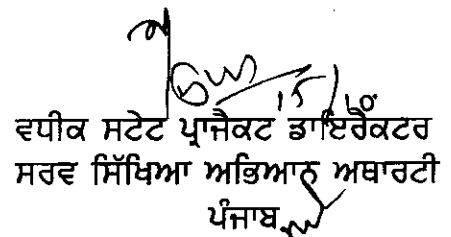 15/10
ਵਧੀਕ ਸਟੇਟ ਪ੍ਰਾਜੈਕਟ ਡਾਇਰੈਕਟਰ
ਸਰਵ ਸਿੱਖਿਆ ਅਭਿਆਨ ਅਥਾਰਟੀ
ਪੰਜਾਬ